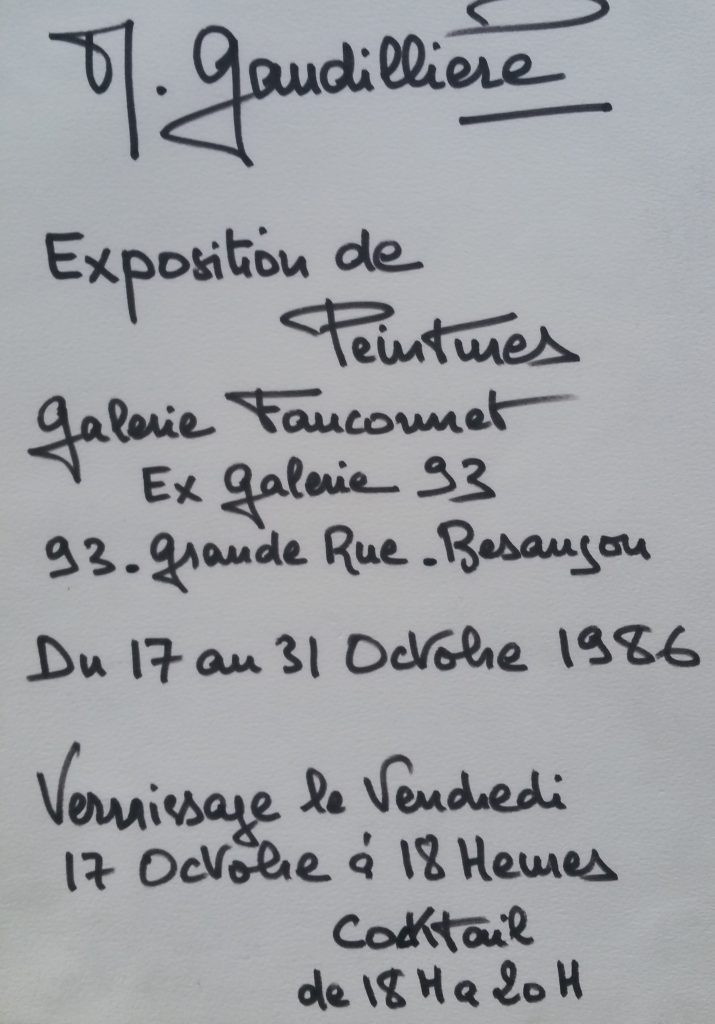 M. Gaudilliere
Exposition de
Peintures
Galerie Fauconnet
Ex Galerie 93
93. Grande Rue. Besançon
Du 17 au 31 Octobre 1986
Vernissage le Vendredi
17 Octobre à 18 Heures
Cocktail
de 18 H a 20 H